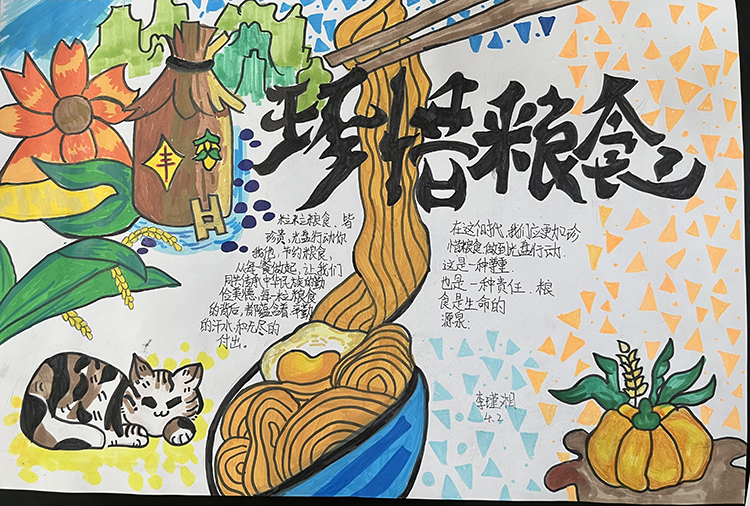 珍惜粮食
丰
粒粒粮食,皆
珍贵,光盘行动你
我他,节约粮食,
从每一餐做起,让我们
共同传承中华民族的勤
俭美德,每一粒粮食
的背后,都蕴含着辛勤
的汗水和无尽的
付出。
在这个时代,我们应更加珍
惜粮食做到光盘行动.
这是一种尊重
也是一种责任.粮
食是生命的
源泉.
李瑾湘
4.2